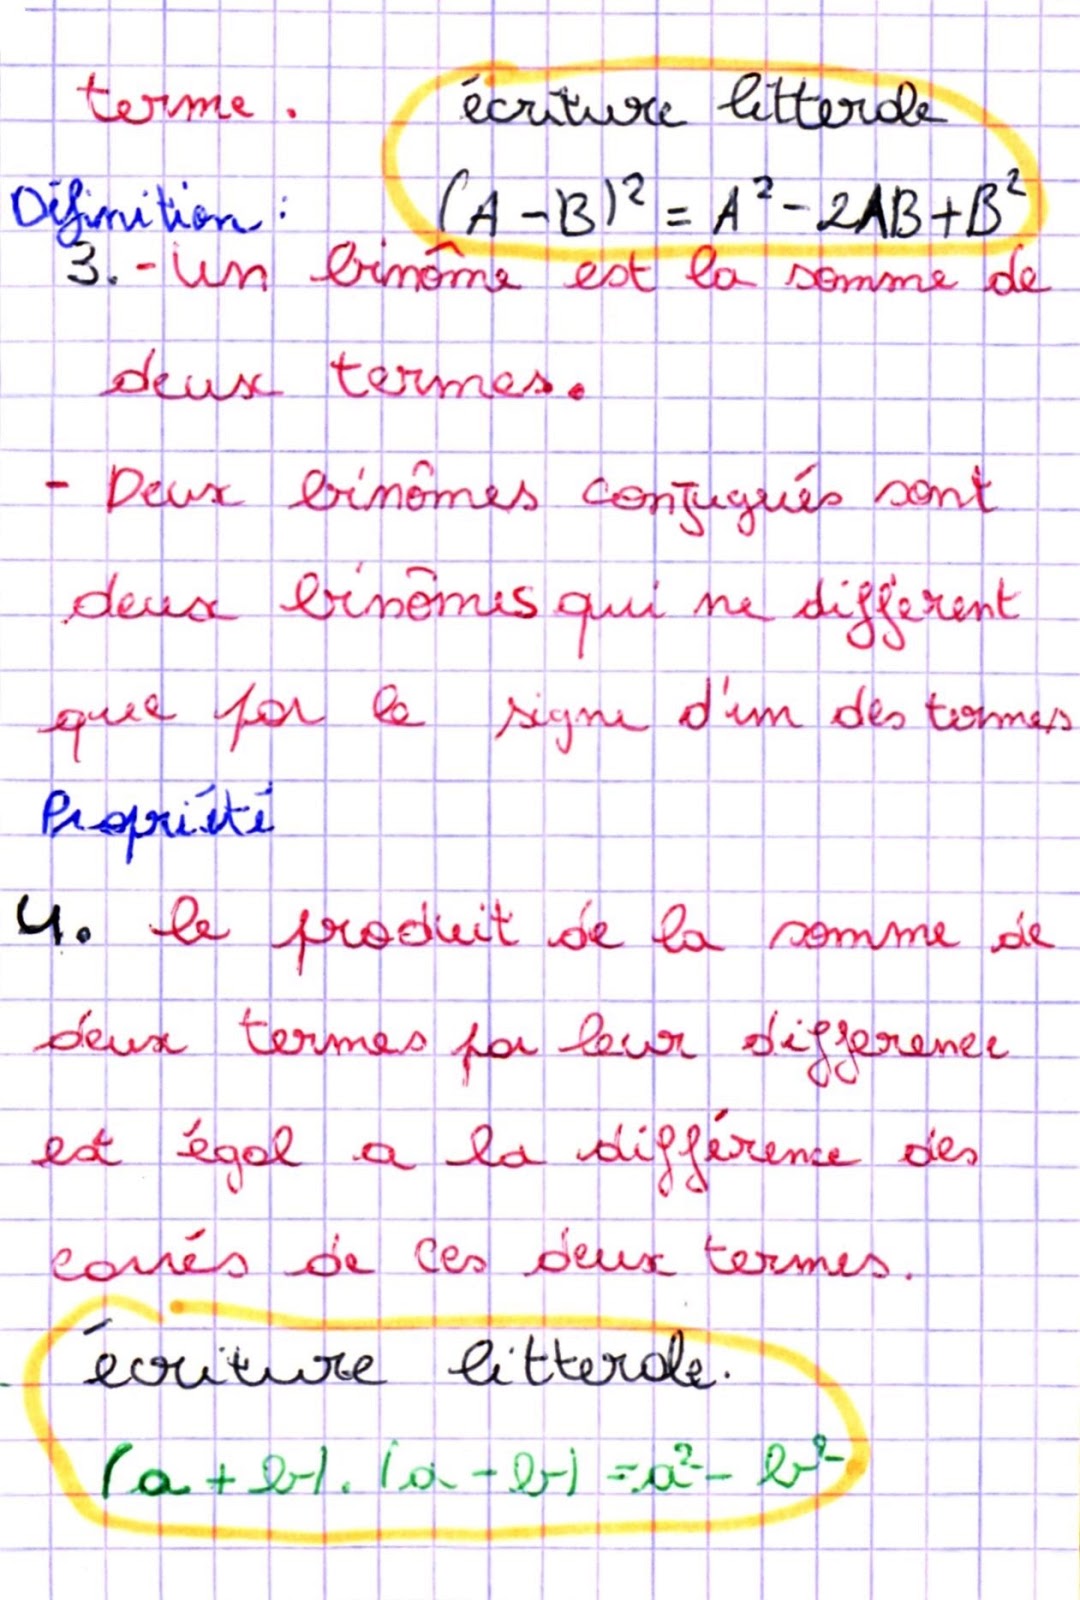 terme. écriture litterale
Définition: (A-B)² = A² - 2AB + B²
3. - Un binôme est la somme de
deux termes.
- Deux binômes conjugués sont
deux binômes qui ne différent
que par le signe d'un des termes
Propriété
4. le produit de la somme de
deux termes pa leur difference
est égal a la différence des
carrés de ces deux termes.
écriture litterale.
(a + b). (a - b) = a² - b²